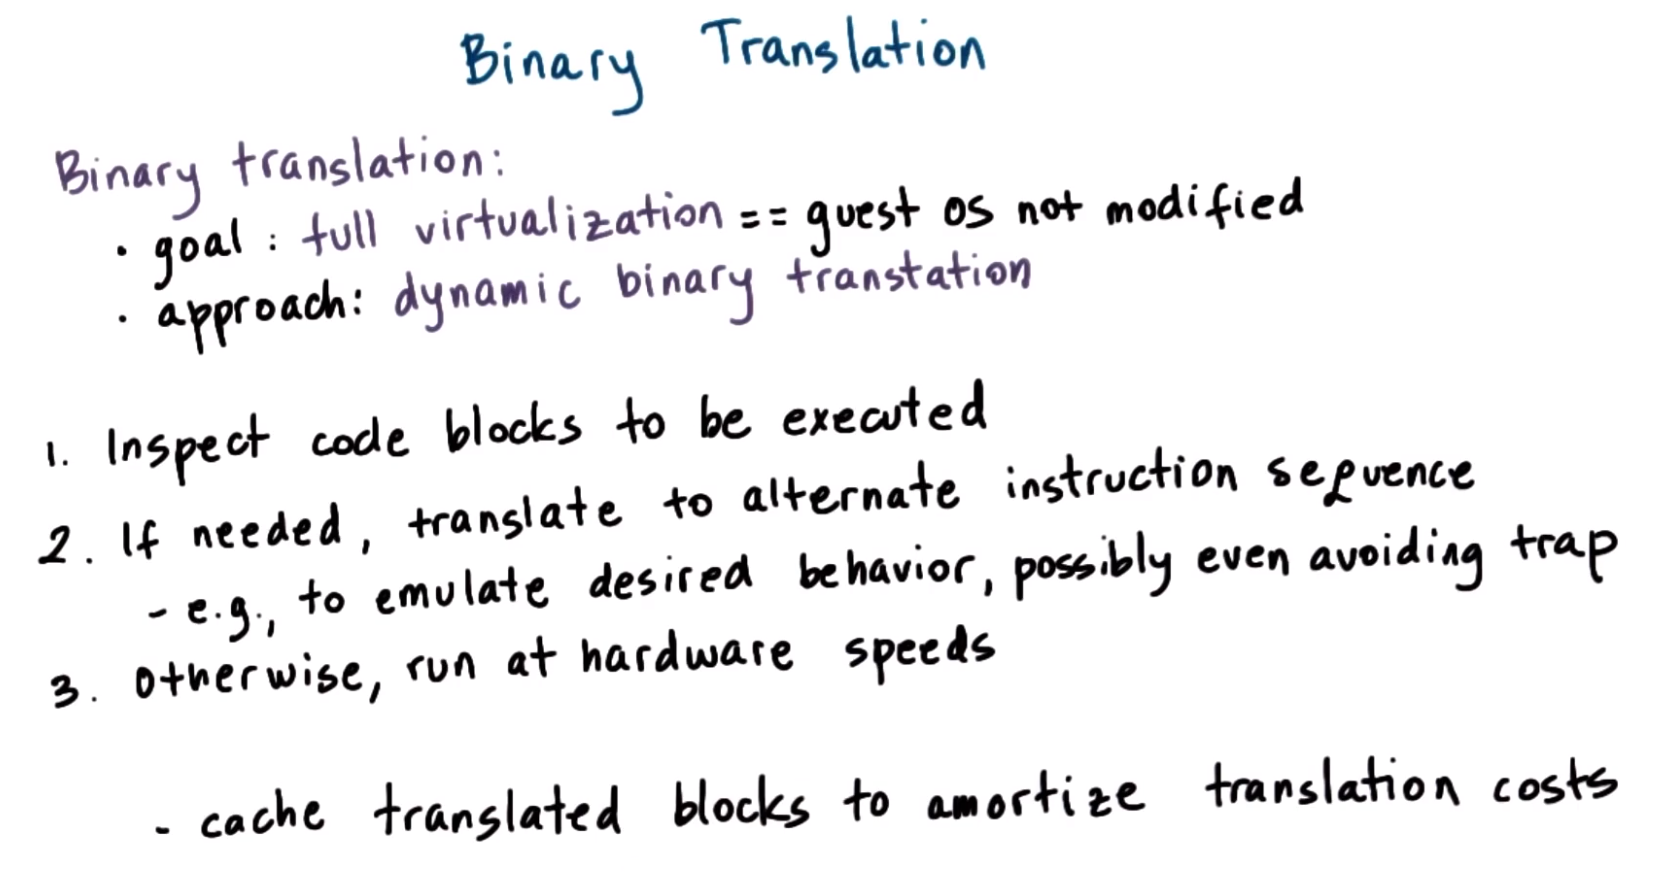 Binary Translation
Binary translation:
• goal : full virtualization == guest os not modified
• approach: dynamic binary transtation
1. Inspect code blocks to be executed
2. If needed, translate to alternate instruction sequence
- e.g., to emulate desired behavior, possibly even avoiding trap
3. otherwise, run at hardware speeds
- cache translated blocks to amortize translation costs